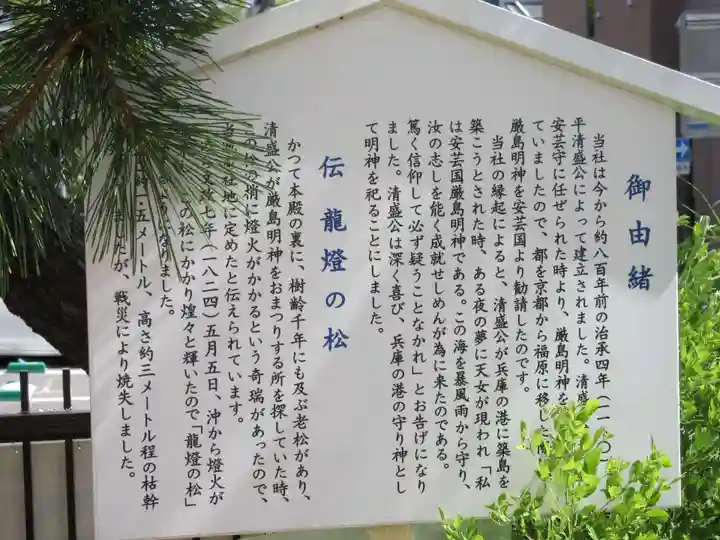 御由緒
当社は今から約八百年前の治承四年（一一〇）
平清盛公によって建立されました。清盛
安芸守に任ぜられた時より、厳島明神を
ていましたので、都を京都から福原に移した
厳島明神を安芸国より勧請したのです。
当社の縁起によると、清盛公が兵庫の港に築島を
築こうとされた時、ある夜の夢に天女が現われ「私
は安芸国厳島明神である。この海を暴風雨から守り、
汝の志しを能く成就せしめんが為に来たのである。
篤く信仰して必ず疑うことなかれ」とお告げになり
ました。清盛公は深く喜び、兵庫の港の守り神とし
て明神を祀ることにしました。
伝 龍燈の松
かつて本殿の裏に、樹齢千年にも及ぶ老松があり、
清盛公が厳島明神をおまつりする所を探していた時、
の松の梢に燈火がかかるという奇瑞があったので、
当 地に定めたと伝えられています。
七年（一八二四）五月五日、沖から燈火が
の松にかかり煌々と輝いたので「龍燈の松」
なりました。
・五メートル、高さ約三メートル程の枯幹
ましたが、戦災により焼失しました。